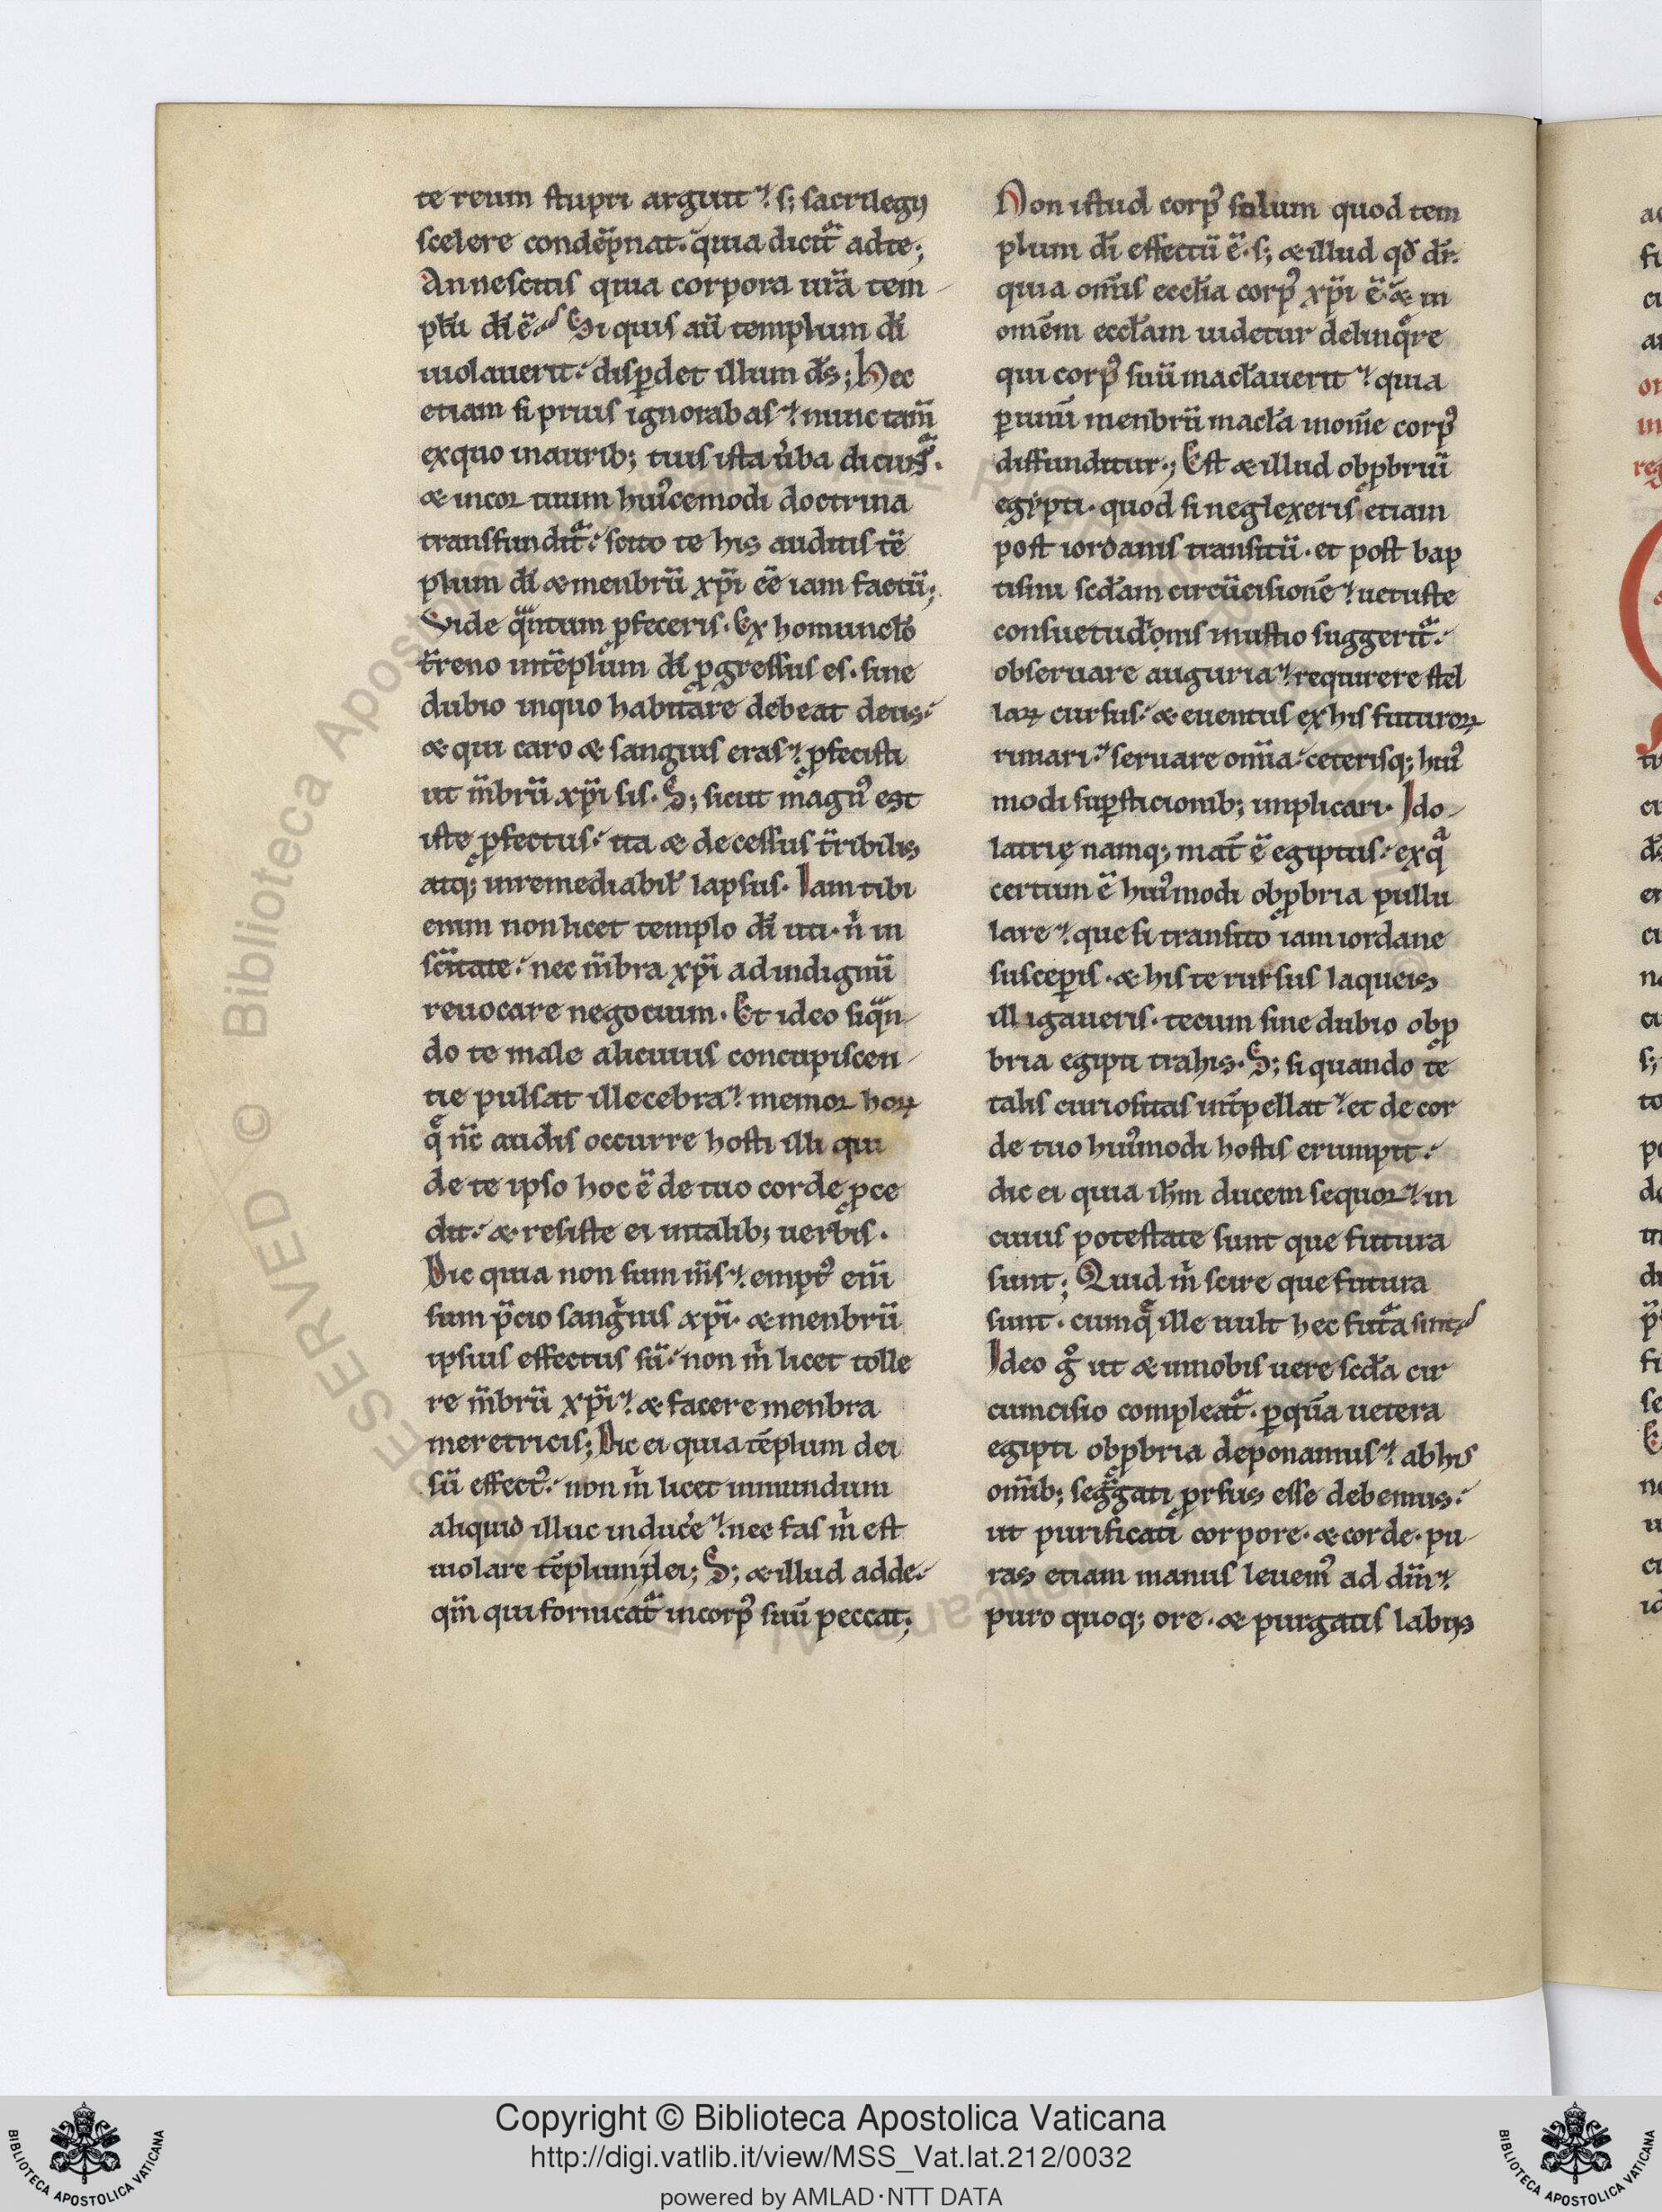 te reum stupri arguit. s; sacrilegij
scelere condēpnat. quia dicit̃ ad te;
An nescitis quia corpora uĩa tem-
plū dī ē. Si quis aū templum dī
uiolauerit. disp̱det illum dš; Hec
etiam si prius ignorabas. nunc tam̃
ex quo in aurib; tuis ista ũba dicunt̃.
& in cor tuum huiꝰcemodi doctrina
transfundit̃. scito te his auditis tē-
plum dī & menbrū xp̄i eē iam factū;
Vide q̃ntum ꝓfeceris. Ex homunclo
t̃reno in tēplum dī ꝓgressus es. sine
dubio in quo habitare debeat deus.
& qui caro & sanguis eras. ꝓfecisti
ut m̃brū xp̄i sis. S; sicut magnꝰ est
iste ꝓfectus. ita & decessus t̃ribilis
atq; inremediabiľ lapsus. Iam tibi
enim non licet templo dī uti. ñ in
scītate. nec m̃bra xp̄i ad indignū
reuocare negocium. Et ideo si q̃n-
do te male alicuius concupiscen-
tie pulsat illecebra. memor hoꝝ
q̃ nc̄ audis occurre hosti illi qui
de te ipso hoc ē de tuo corde ꝓce
dit. & resiste ei in talib; uerbis.
Dic quia non sum m̃s. emptꝰ eni̅
sum p̃cio sanginis xp̄i. & menbrū
ipsius effectus sū. non m̃ licet tolle
re m̃brū xp̄i. & facere menbra
meretricis; Dic ei quia tēplum dei
sū effectꝰ. non m̃ licet inmundum
aliquid illuc induc̃e. nec fas m̃ est
uiolare tēplum dei; S; & illud adde.
qm̃ qui fornicat̃ in corpꝰ suū peccat;
Non istud corpꝰ solum quod tem
plum dī effectū ē. s; & illud qd̃ dr̃.
quia om̃is eccľia corpꝰ xp̄i ē. & in
omēm eccľam uidetur delinq̃re
qui corpꝰ suū macľauerit. quia
ꝑ unū menbrū macľa in om̃e corpꝰ
diffunditur; Est & illud obꝓbriū
egypti. quod si neglexeris etiam
post iordanis transitū. et post bap
tismi scďam circūcisionē. uetuste
consuetudonis inustio suggerit̃.
obseruare auguria. requirere stel
laꝝ cursus. & euentus ex his futuroꝝ
rimari. seruare omīa. ceterisq; huiꝰ
modi suꝑsticionib; implicari. Ido-
latrię namq; mat̃ ē egiptus. ex q̃
certum ē huiꝰmodi obꝓbria pullu
lare. que si transito iam iordane
susceꝑis. & his te rursus laqueis
illigaueris. tecum sine dubio obꝓ
bria egipti trahis. S; si quando te
talis curiositas int̃pellat. et de cor
de tuo huiꝰmodi hostis erumpit.
dic ei quia ihm̃ ducem sequor. in
cuius potestate sunt que futura
sunt; Quid m̃ scire que futura
sunt. cum q̃ ille uult hec fut̃a sint.
Ideo g̊ ut & in nobis uere scďa cir
cumcisio compleat̃. ꝑ quā uetera
egipti obꝓbria deponamus. ab his
om̃ib; seg̃gati ꝓrsus esse debemus.
ut purificati corpore. & corde. pu
ras etiam manus leuemꝰ ad dm̃.
puro quoq; ore. & purgatis labijs
Copyright © Biblioteca Apostolica Vaticana
http://digi.vatlib.it/view/MSS_Vat.lat.212/0032
powered by AMLAD·NTT DATA
BIBLIOTECA APOSTOLICA VATICANA
BIBLIOTECA APOSTOLICA VATICANA